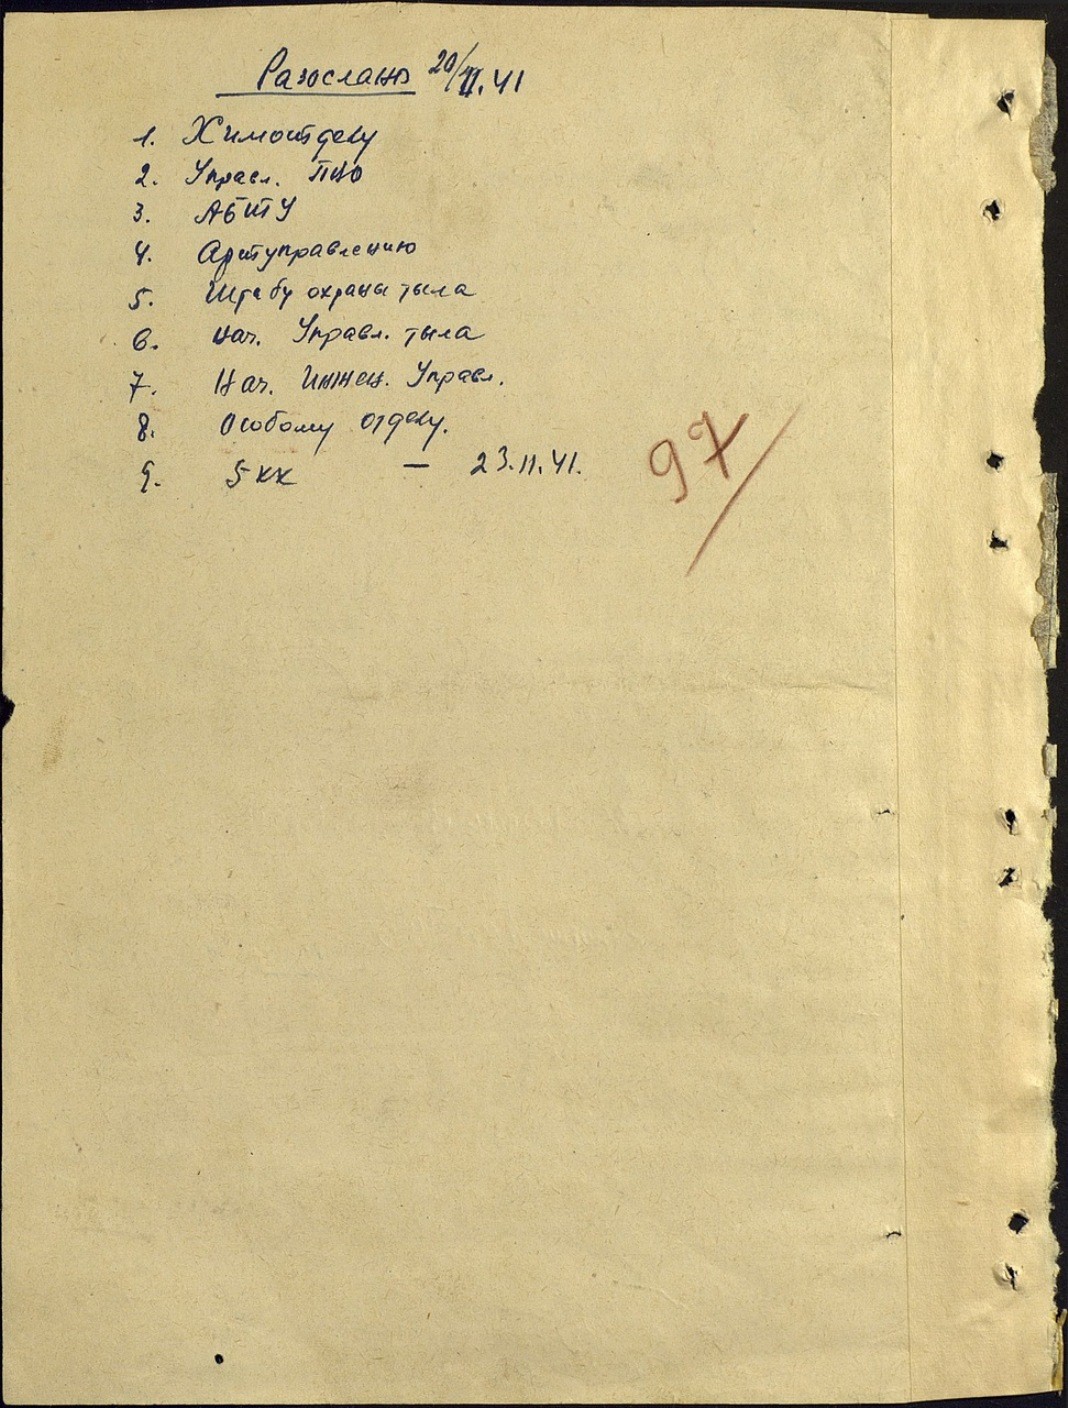 Разослано 20/XI.41
1. Химотделу
2. Управл. ПВО
3. АБТУ
4. Артуправлению
5. Штабу охраны тыла
6. Нач. Управл. тыла
7. Нач. Инжен. Управл.
8. Особому отделу.
9. 5 кк — 23.11.41.
97